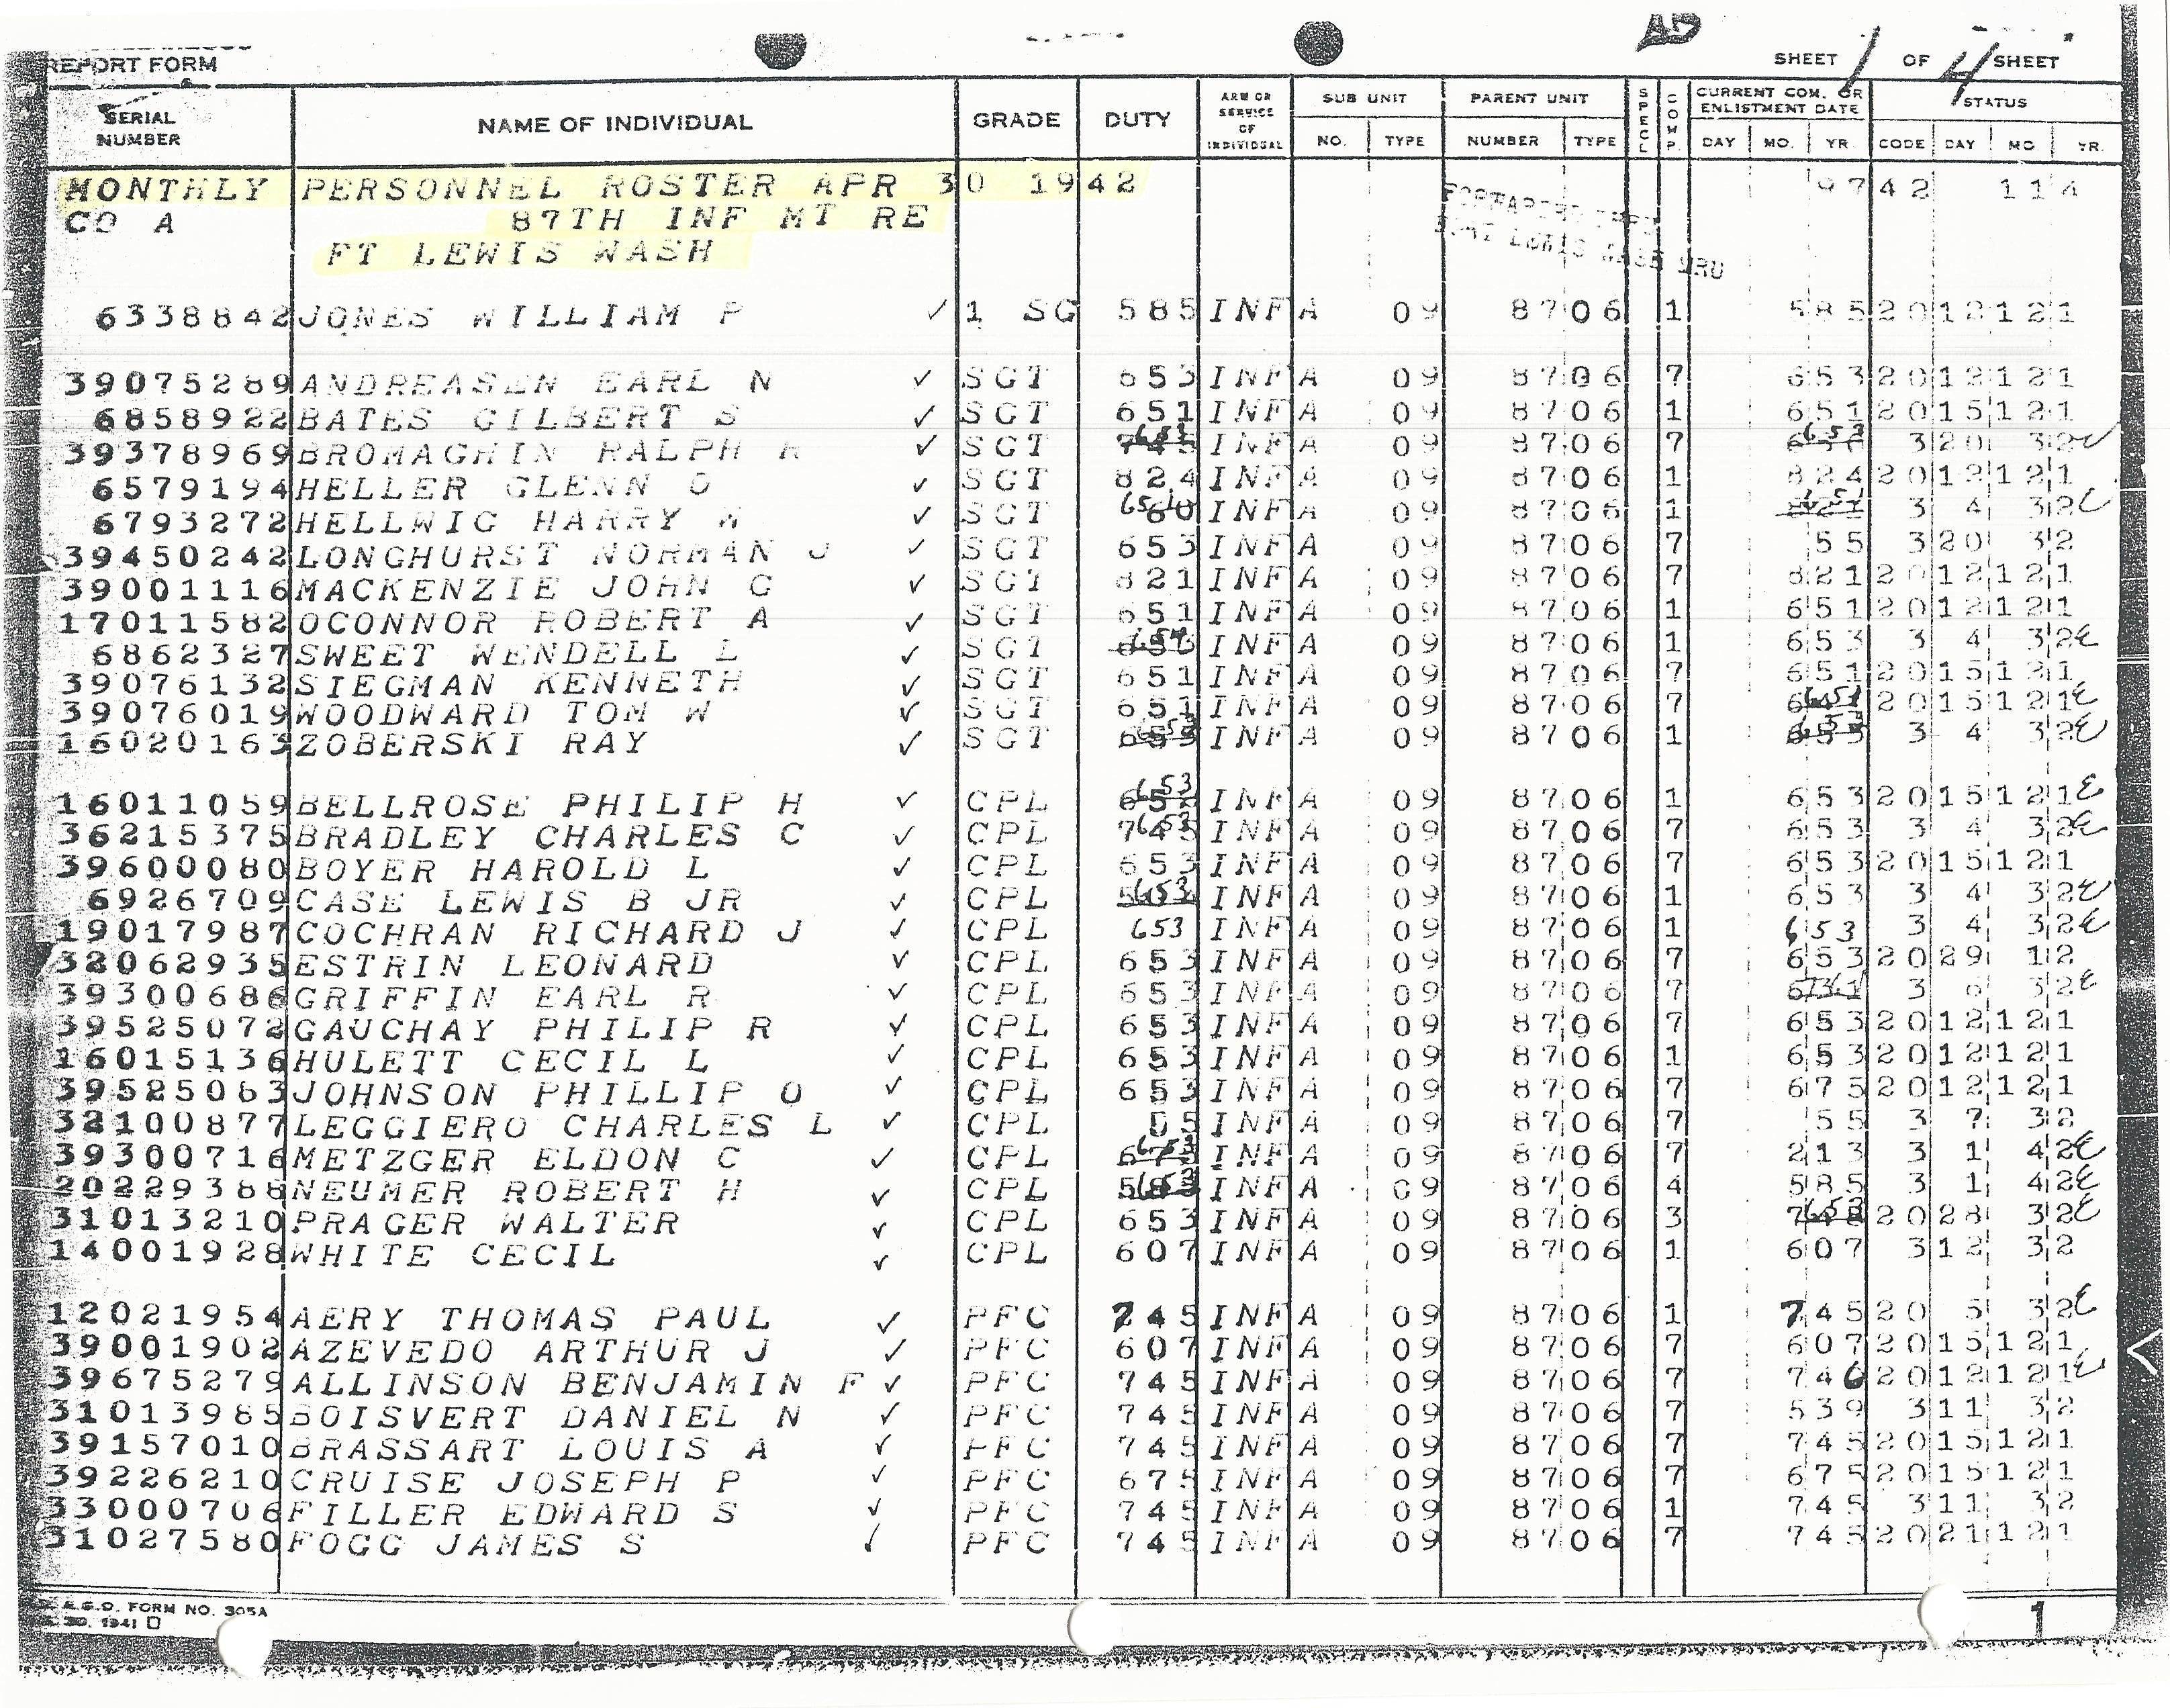 REPORT FORM
SHEET 1 OF 4 SHEET
SERIAL NUMBER NAME OF INDIVIDUAL GRADE DUTY ARM OR SERVICE OF INDIVIDUAL SUB UNIT PARENT UNIT SPECL COMP. CURRENT COM. OR ENLISTMENT DATE STATUS
NO. TYPE NUMBER TYPE DAY MO. YR. CODE DAY MO YR.
MONTHLY PERSONNEL ROSTER APR 30 1942 9742 114
CO A 87TH INF MT RE
FT LEWIS WASH
6338842 JONES WILLIAM P ✓ 1 SG 585 INF A 09 87 06 1 585 20 12 12 1
39075289 ANDREASEN EARL N ✓ SGT 653 INF A 09 87 06 7 653 20 12 12 1
6858922 BATES GILBERT S ✓ SGT 651 INF A 09 87 06 1 651 20 15 12 1
39378969 BROMAGHIN RALPH R ✓ SGT 653 INF A 09 87 06 7 653 3 20 3 2
6579194 HELLER GLENN O ✓ SGT 824 INF A 09 87 06 1 824 20 12 12 1
6793272 HELLWIG HARRY W ✓ SGT INF A 09 87 06 1 3 4 3 2
39450242 LONGHURST NORMAN J ✓ SGT 653 INF A 09 87 06 7 55 3 20 3 2
39001116 MACKENZIE JOHN G ✓ SGT 821 INF A 09 87 06 7 821 20 12 12 1
17011582 OCONNOR ROBERT A ✓ SGT 651 INF A 09 87 06 1 651 20 12 12 1
6862327 SWEET WENDELL L ✓ SGT INF A 09 87 06 1 653 3 4 3 2
39076132 SIEGMAN KENNETH ✓ SGT 651 INF A 09 87 06 7 651 20 15 12 1
39076019 WOODWARD TOM W ✓ SGT 651 INF A 09 87 06 7 20 15 12 1
16020163 ZOBERSKI RAY ✓ SGT 653 INF A 09 87 06 1 653 3 4 3 2
16011059 BELLROSE PHILIP H ✓ CPL 653 INF A 09 87 06 1 653 20 15 12 1
36215375 BRADLEY CHARLES C ✓ CPL 745 653 INF A 09 87 06 7 653 3 4 3 2
39600080 BOYER HAROLD L ✓ CPL 653 INF A 09 87 06 7 653 20 15 12 1
6926709 CASE LEWIS B JR ✓ CPL 653 INF A 09 87 06 1 653 3 4 3 2
19017987 COCHRAN RICHARD J ✓ CPL 653 INF A 09 87 06 1 653 3 4 3 2
32062935 ESTRIN LEONARD ✓ CPL 653 INF A 09 87 06 7 653 20 29 1 2
39300686 GRIFFIN EARL R ✓ CPL 653 INF A 09 87 06 7 3 6 3 2
39525072 GAUCHAY PHILIP R ✓ CPL 653 INF A 09 87 06 7 653 20 12 12 1
16015136 HULETT CECIL L ✓ CPL 653 INF A 09 87 06 1 653 20 12 12 1
39525063 JOHNSON PHILLIP O ✓ CPL 653 INF A 09 87 06 7 675 20 12 12 1
32100877 LEGGIERO CHARLES L ✓ CPL 55 INF A 09 87 06 7 55 3 7 3 2
39300716 METZGER ELDON C ✓ CPL 653 INF A 09 87 06 7 213 3 1 4 2
20229388 NEUMER ROBERT H ✓ CPL 653 INF A 09 87 06 4 585 3 1 4 2
31013210 PRAGER WALTER ✓ CPL 653 INF A 09 87 06 3 653 20 28 3 2
14001928 WHITE CECIL ✓ CPL 607 INF A 09 87 06 1 607 3 12 3 2
12021954 AERY THOMAS PAUL ✓ PFC 745 INF A 09 87 06 1 745 20 5 3 2
39001902 AZEVEDO ARTHUR J ✓ PFC 607 INF A 09 87 06 7 607 20 15 12 1
39675279 ALLINSON BENJAMIN F ✓ PFC 745 INF A 09 87 06 7 746 20 12 12 1
31013985 BOISVERT DANIEL N ✓ PFC 745 INF A 09 87 06 7 539 3 11 3 2
39157010 BRASSART LOUIS A ✓ PFC 745 INF A 09 87 06 7 745 20 15 12 1
39226210 CRUISE JOSEPH P ✓ PFC 675 INF A 09 87 06 7 675 20 15 12 1
33000706 FILLER EDWARD S ✓ PFC 745 INF A 09 87 06 1 745 3 11 3 2
31027580 FOGG JAMES S ✓ PFC 745 INF A 09 87 06 7 745 20 21 12 1
A.G.O. FORM NO. 305A
30, 1941
1